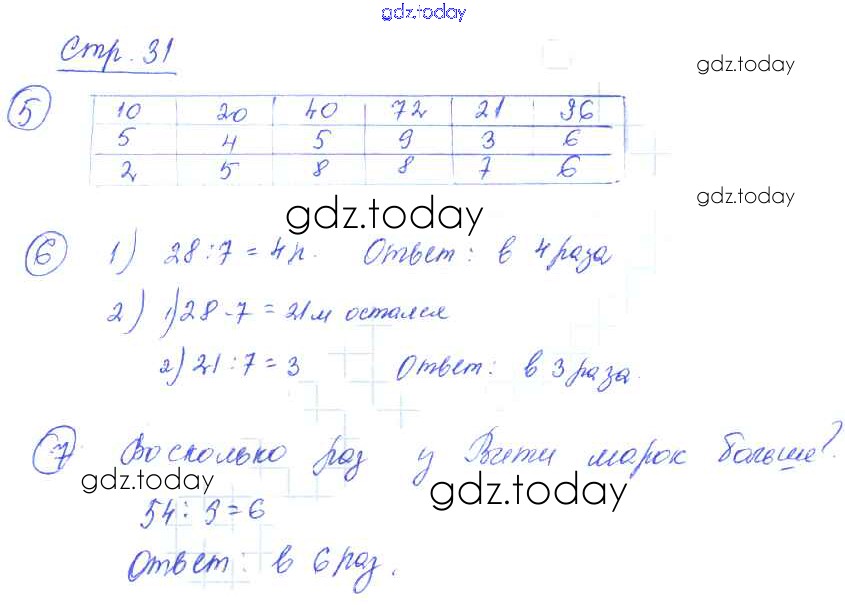 gdz.today
Стр. 31
gdz.today
5
10 20 40 72 21 36
5 4 5 9 3 6
2 5 8 8 7 6
gdz.today
gdz.today
6 1) 28:7=4р. Ответ: в 4 раза
2) 1) 28-7=21м остался
2) 21:7=3 Ответ: в 3 раза.
7 Во сколько раз у Вити марок больше?
gdz.today
gdz.today
54:9=6
Ответ: в 6 раз.